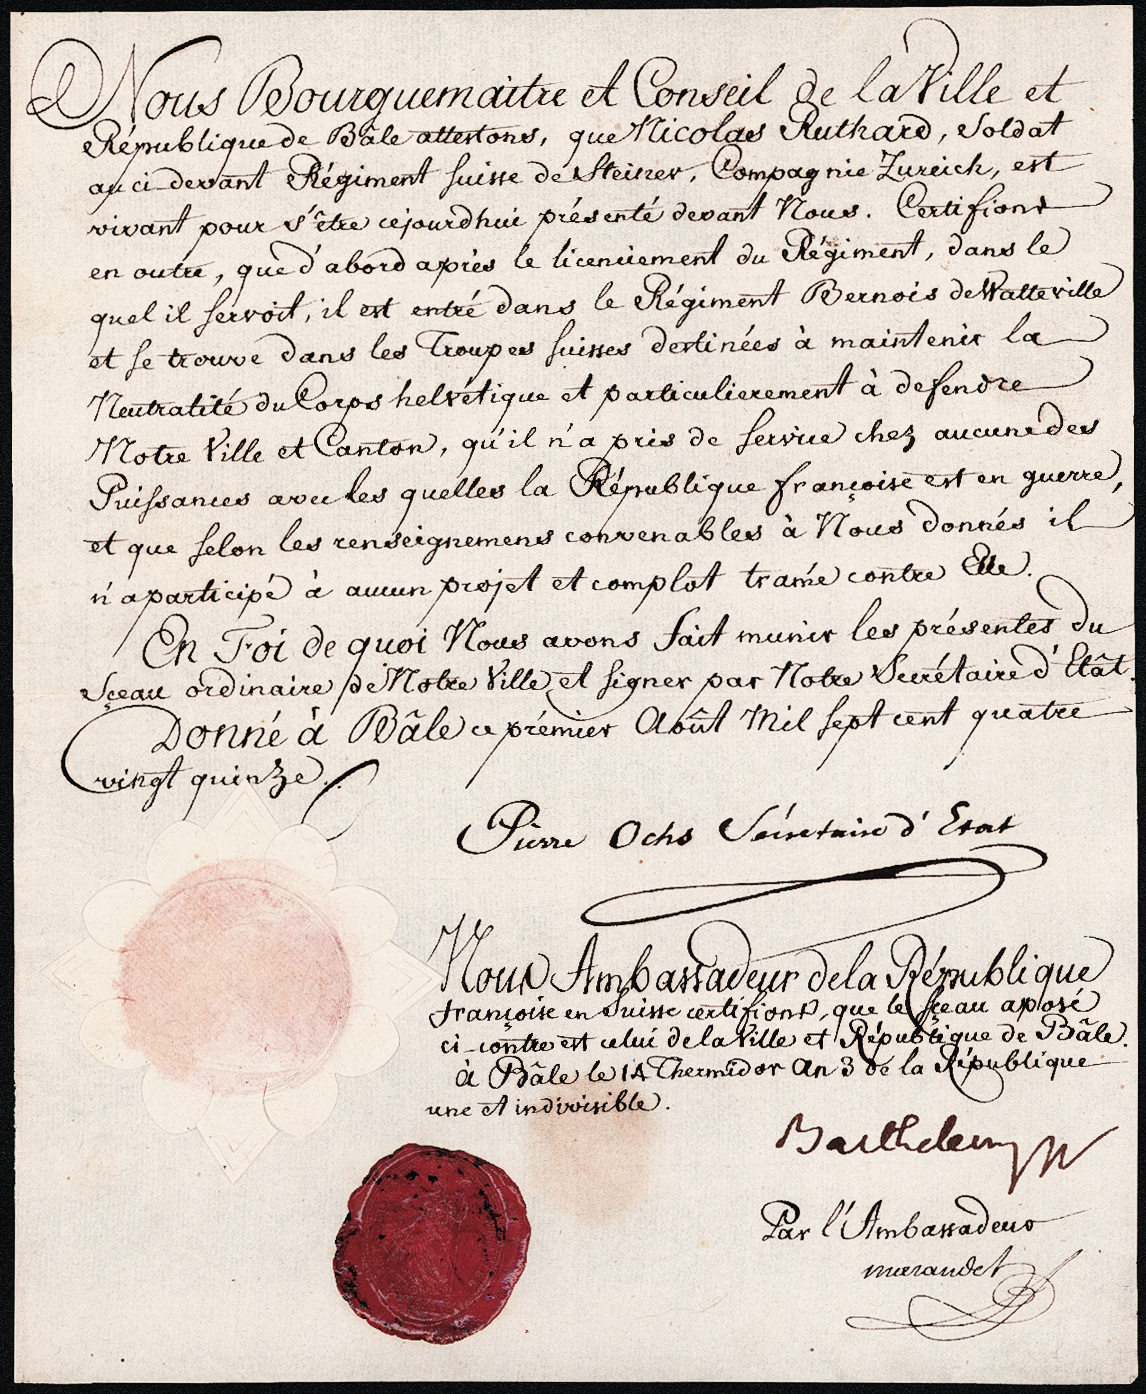 Nous Bourguemaitre et Conseil de la Ville et
République de Bâle attestons, que Nicolas Ruthard, Soldat
au ci-devant Régiment suisse de Steiner, Compagnie Zureich, est
vivant pour s'être cejourdhui présenté devant Nous. Certifions
en outre, que d'abord après le licenciement du Régiment, dans le
quel il servoit, il est entré dans le Régiment Bernois de Watteville
et se trouve dans les Troupes suisses destinées à maintenir la
Neutralité du Corps helvétique et particulierement à defendre
Notre Ville et Canton, qu'il n'a pris de service chez aucune des
Puissances avec les quelles la République françoise est en guerre,
et que selon les renseignemens convenables à Nous donnés il
n'a participé à aucun projet et complot tramé contre Elle.
En Foi de quoi Nous avons fait munir les présentes du
Sçeau ordinaire de Notre Ville et signer par Notre Secrétaire d'Etât.
Donné à Bâle ce prémier Août Mil sept cent quatre
vingt quinze.
Pierre Ochs Sécretaire d'Etat
Nous Ambassadeur de la République
françoise en Suisse certifions, que le sçeau aposé
ci-contre est celui de la Ville et République de Bâle.
à Bâle le 14 Thermidor An 3 de la République
une et indivisible.
Barthelemy
Par l'Ambassadeur
marandet